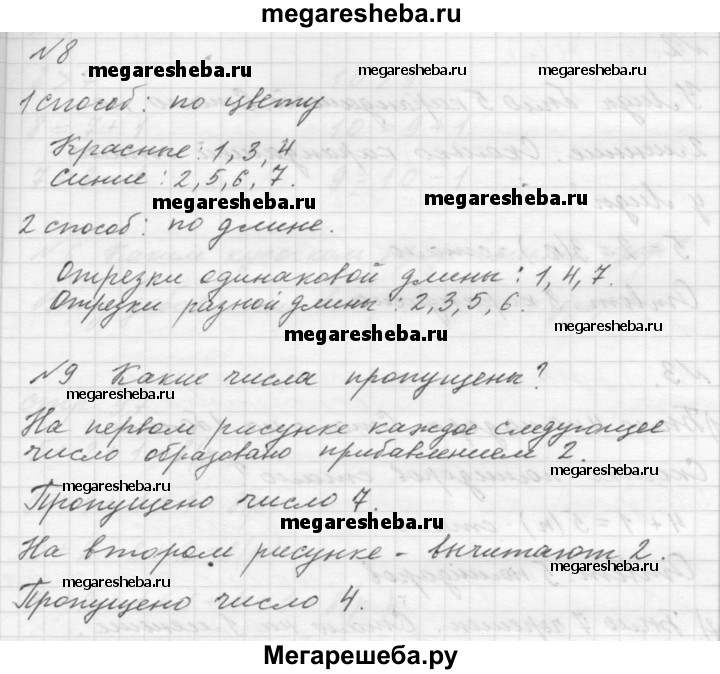 megaresheba.ru
№8
megaresheba.ru
megaresheba.ru
1 способ: по цвету
Красные: 1, 3, 4
Синие: 2, 5, 6, 7.
megaresheba.ru
megaresheba.ru
2 способ: по длине.
Отрезки одинаковой длины: 1, 4, 7.
Отрезки разной длины: 2, 3, 5, 6.
megaresheba.ru
megaresheba.ru
№9 Какие числа пропущены?
megaresheba.ru
На первом рисунке каждое следующее
число образовано прибавлением 2.
megaresheba.ru
megaresheba.ru
Пропущено число 7.
megaresheba.ru
На втором рисунке - вычитают 2.
megaresheba.ru
megaresheba.ru
Пропущено число 4.
Мегарешеба.ру